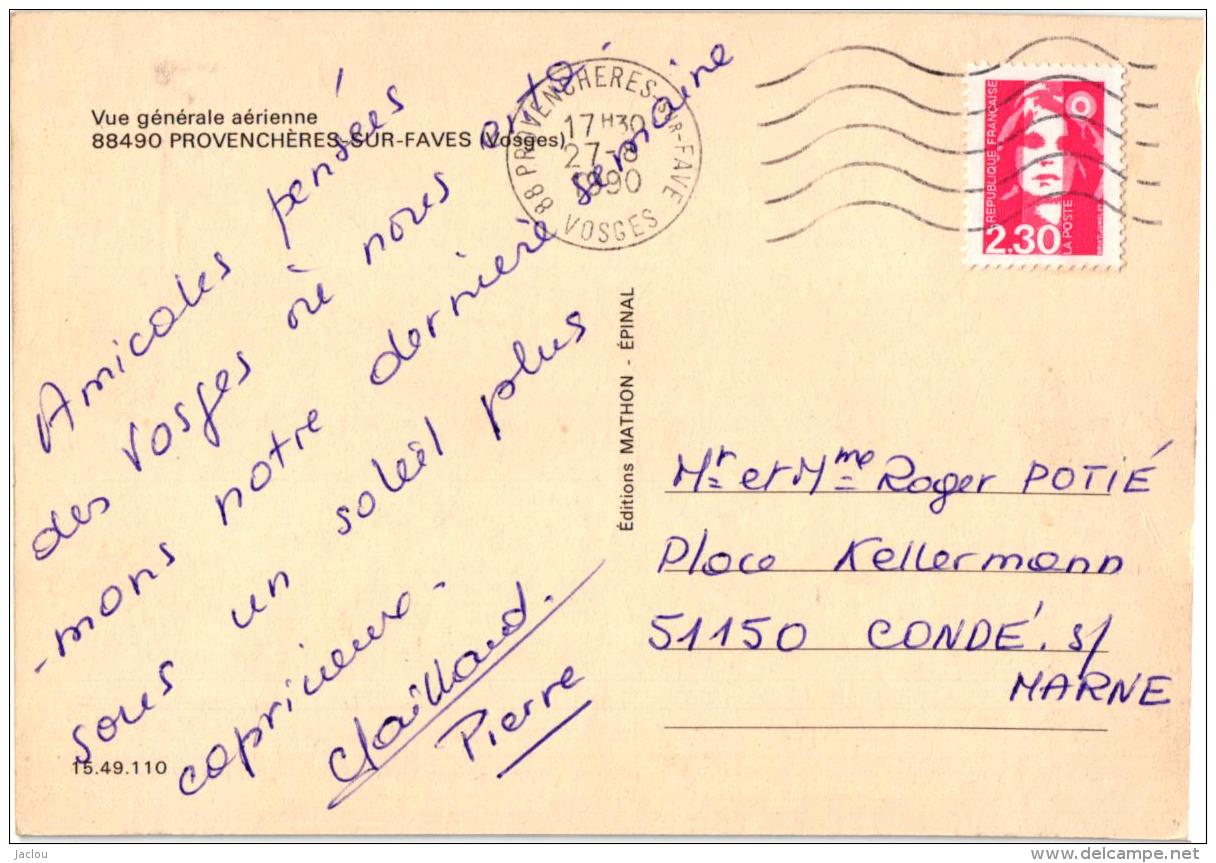 Vue générale aérienne
88490 PROVENCHÈRES-SUR-FAVES (Vosges)
88 PROVENCHERES-SUR-FAVE
17 H30
27-8
1990
VOSGES
REPUBLIQUE FRANÇAISE
2.30
LA POSTE
Amicales pensées
des Vosges où nous enta
-mons notre dernière semaine
sous un soleil plus
capricieux.
Claillaud.
Pierre
Éditions MATHON - ÉPINAL
Mr et Mme Roger POTIÉ
Place Kellermann
51150 CONDÉ. s/
MARNE
15.49.110
Jaclou
www.delcampe.net